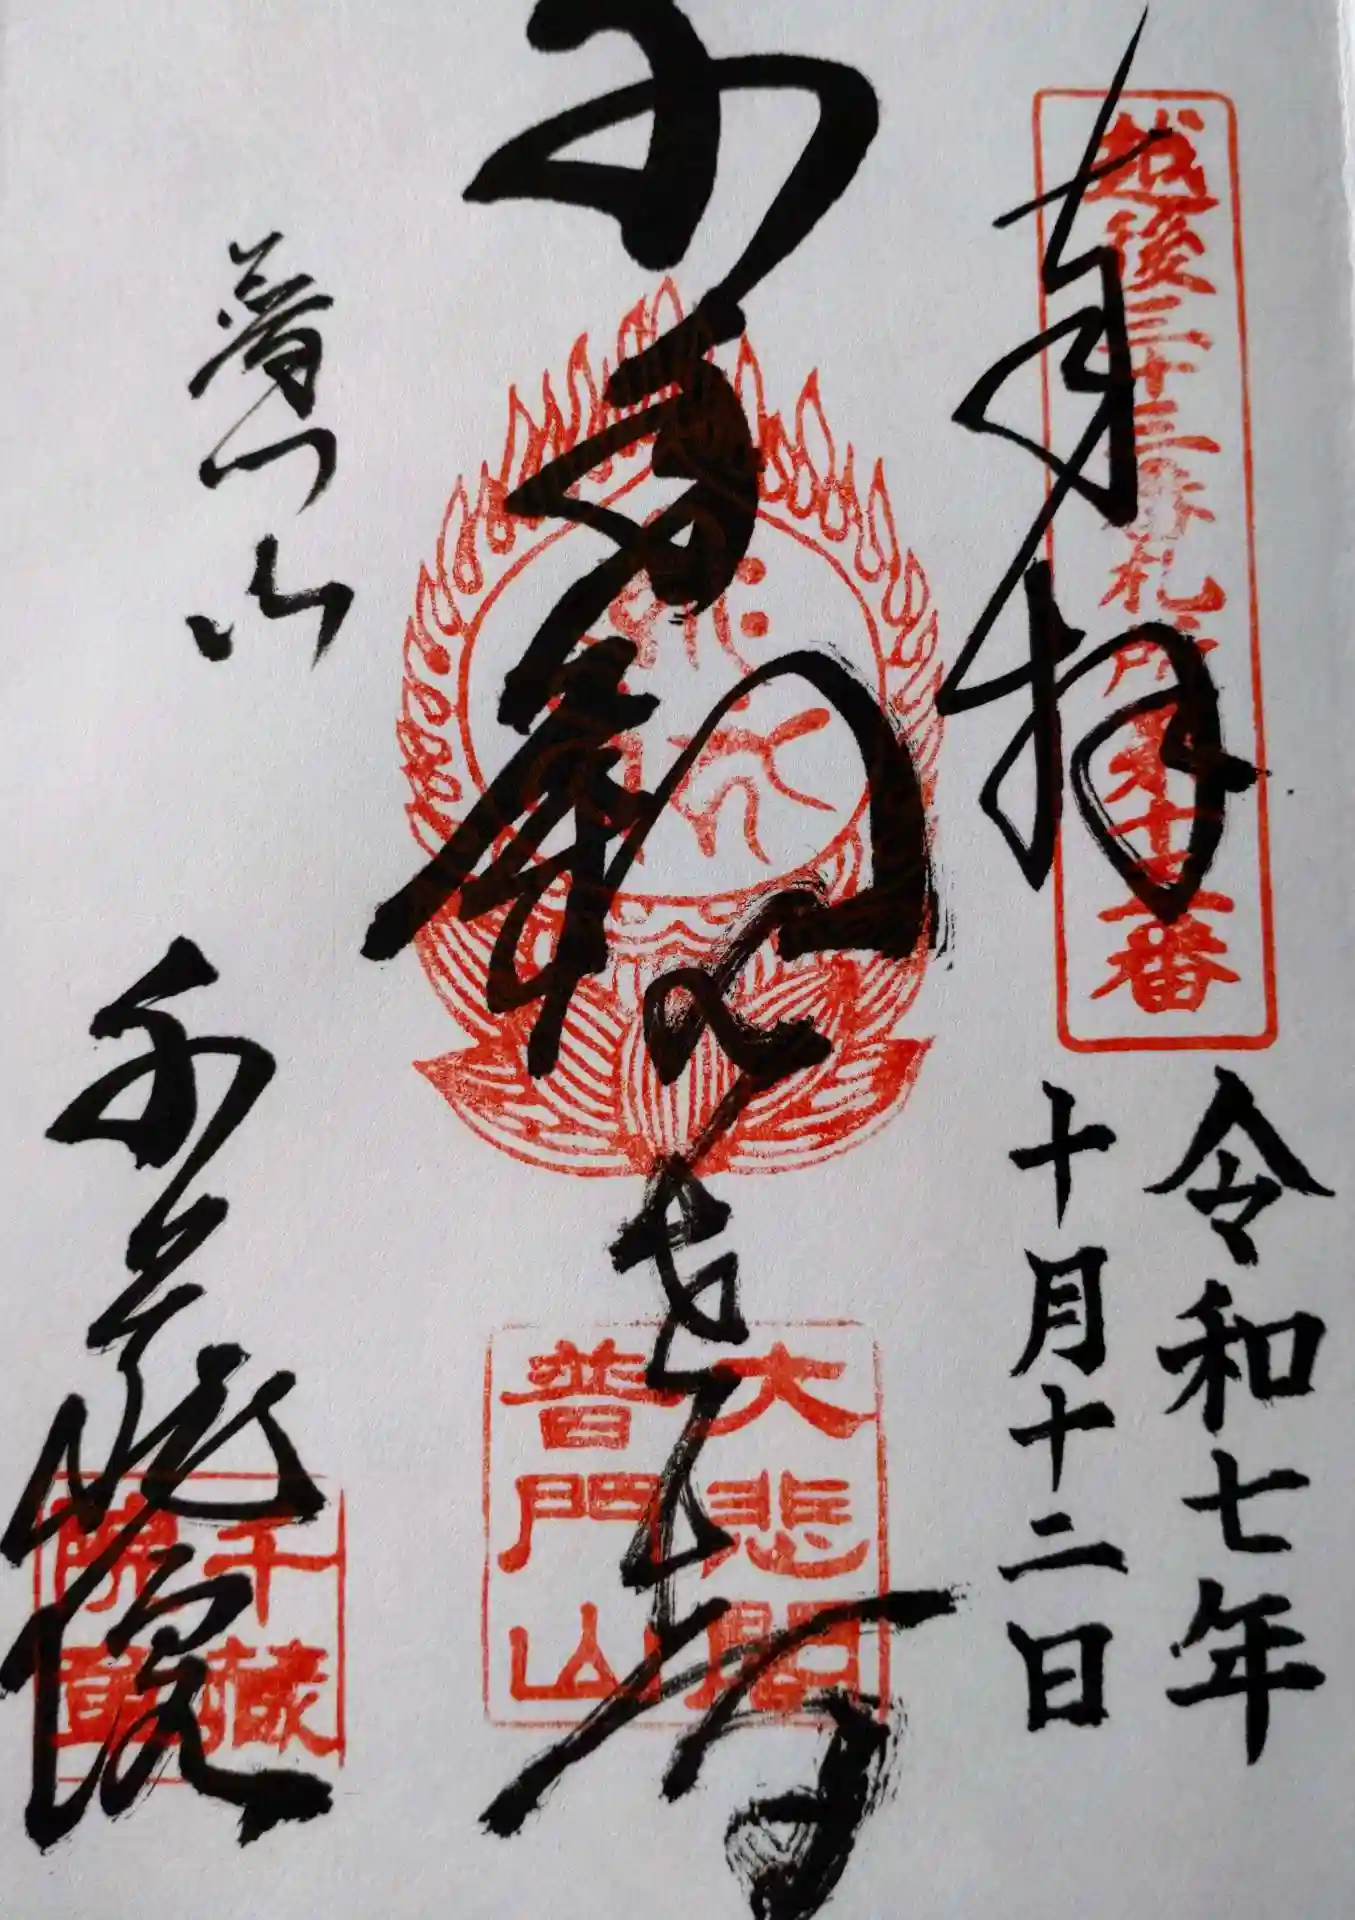 越後三十三番札所第十二番
奉拝
令和七年
十月十二日
千手観
大悲閣
普門山
普門山
千蔵院
千蔵